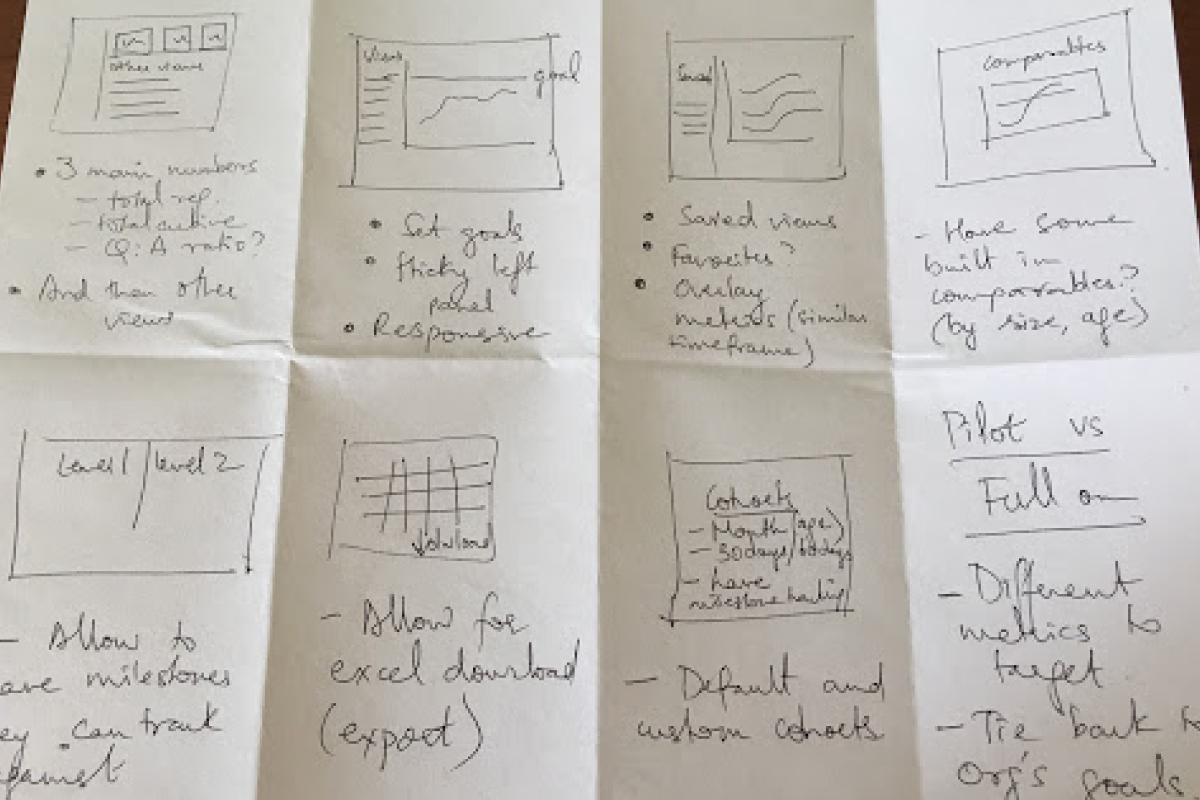 other views
• 3 main numbers
- total rep.
- total active
- Q: A ratio?
• And then other
views
Views
goal
• Set goals
• Sticky left
panel
• Responsive
Saved
• Saved views
• Favorites?
• Overlay
metrics (similar
timeframe)
comparables
- Have some
built in
comparables?
(by size, age)
Level 1 | Level 2
- Allow to
milestones
can track
against
- Allow for
excel download
(export)
Cohorts
- Month (age)
- 30 days/60 days
- have
milestone
- Default and
custom cohorts
Pilot vs
Full on
- Different
metrics to
target
- Tie back to
Org's goals